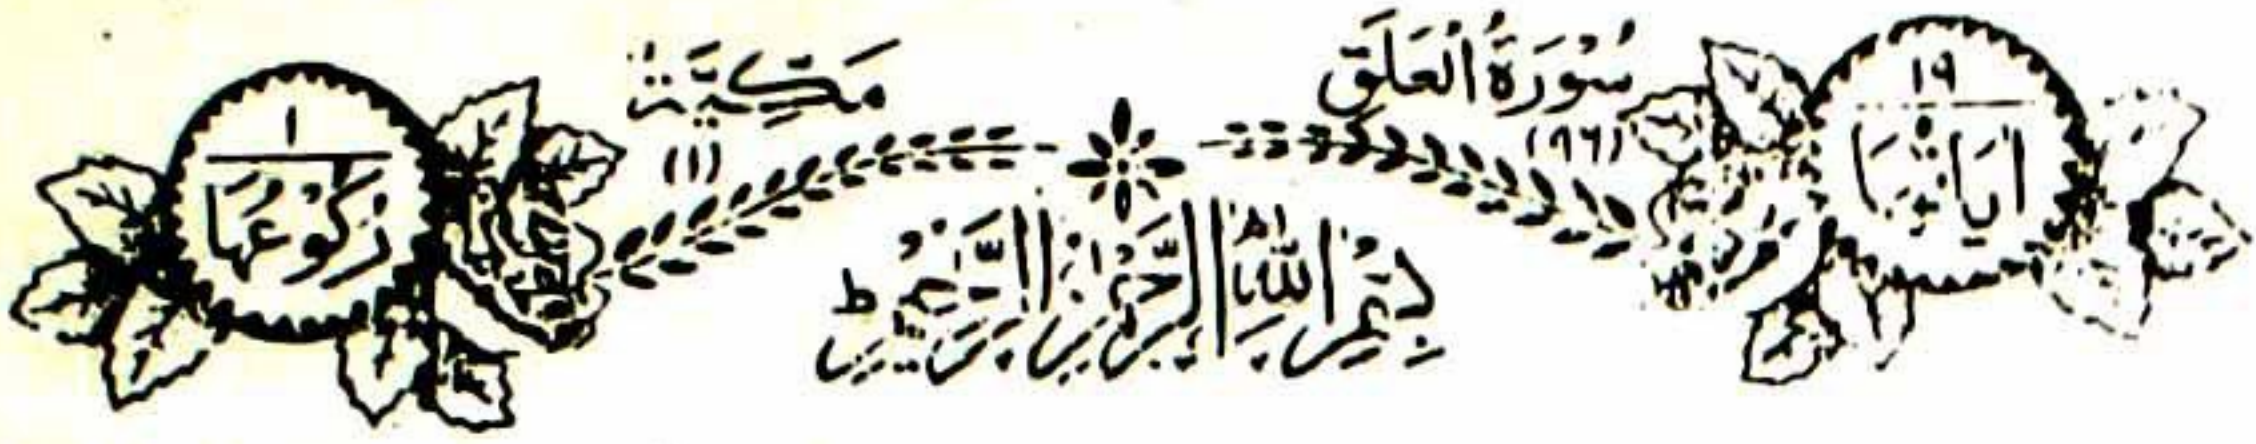 ١٩
اٰيَاتُهَا
سُوْرَةُ الْعَلَقِ
(٩٦)
مَكِّيَّةٌ
(١)
١
رُكُوْعُهَا
بِسْمِ اللّٰهِ الرَّحْمٰنِ الرَّحِيْمِ ط